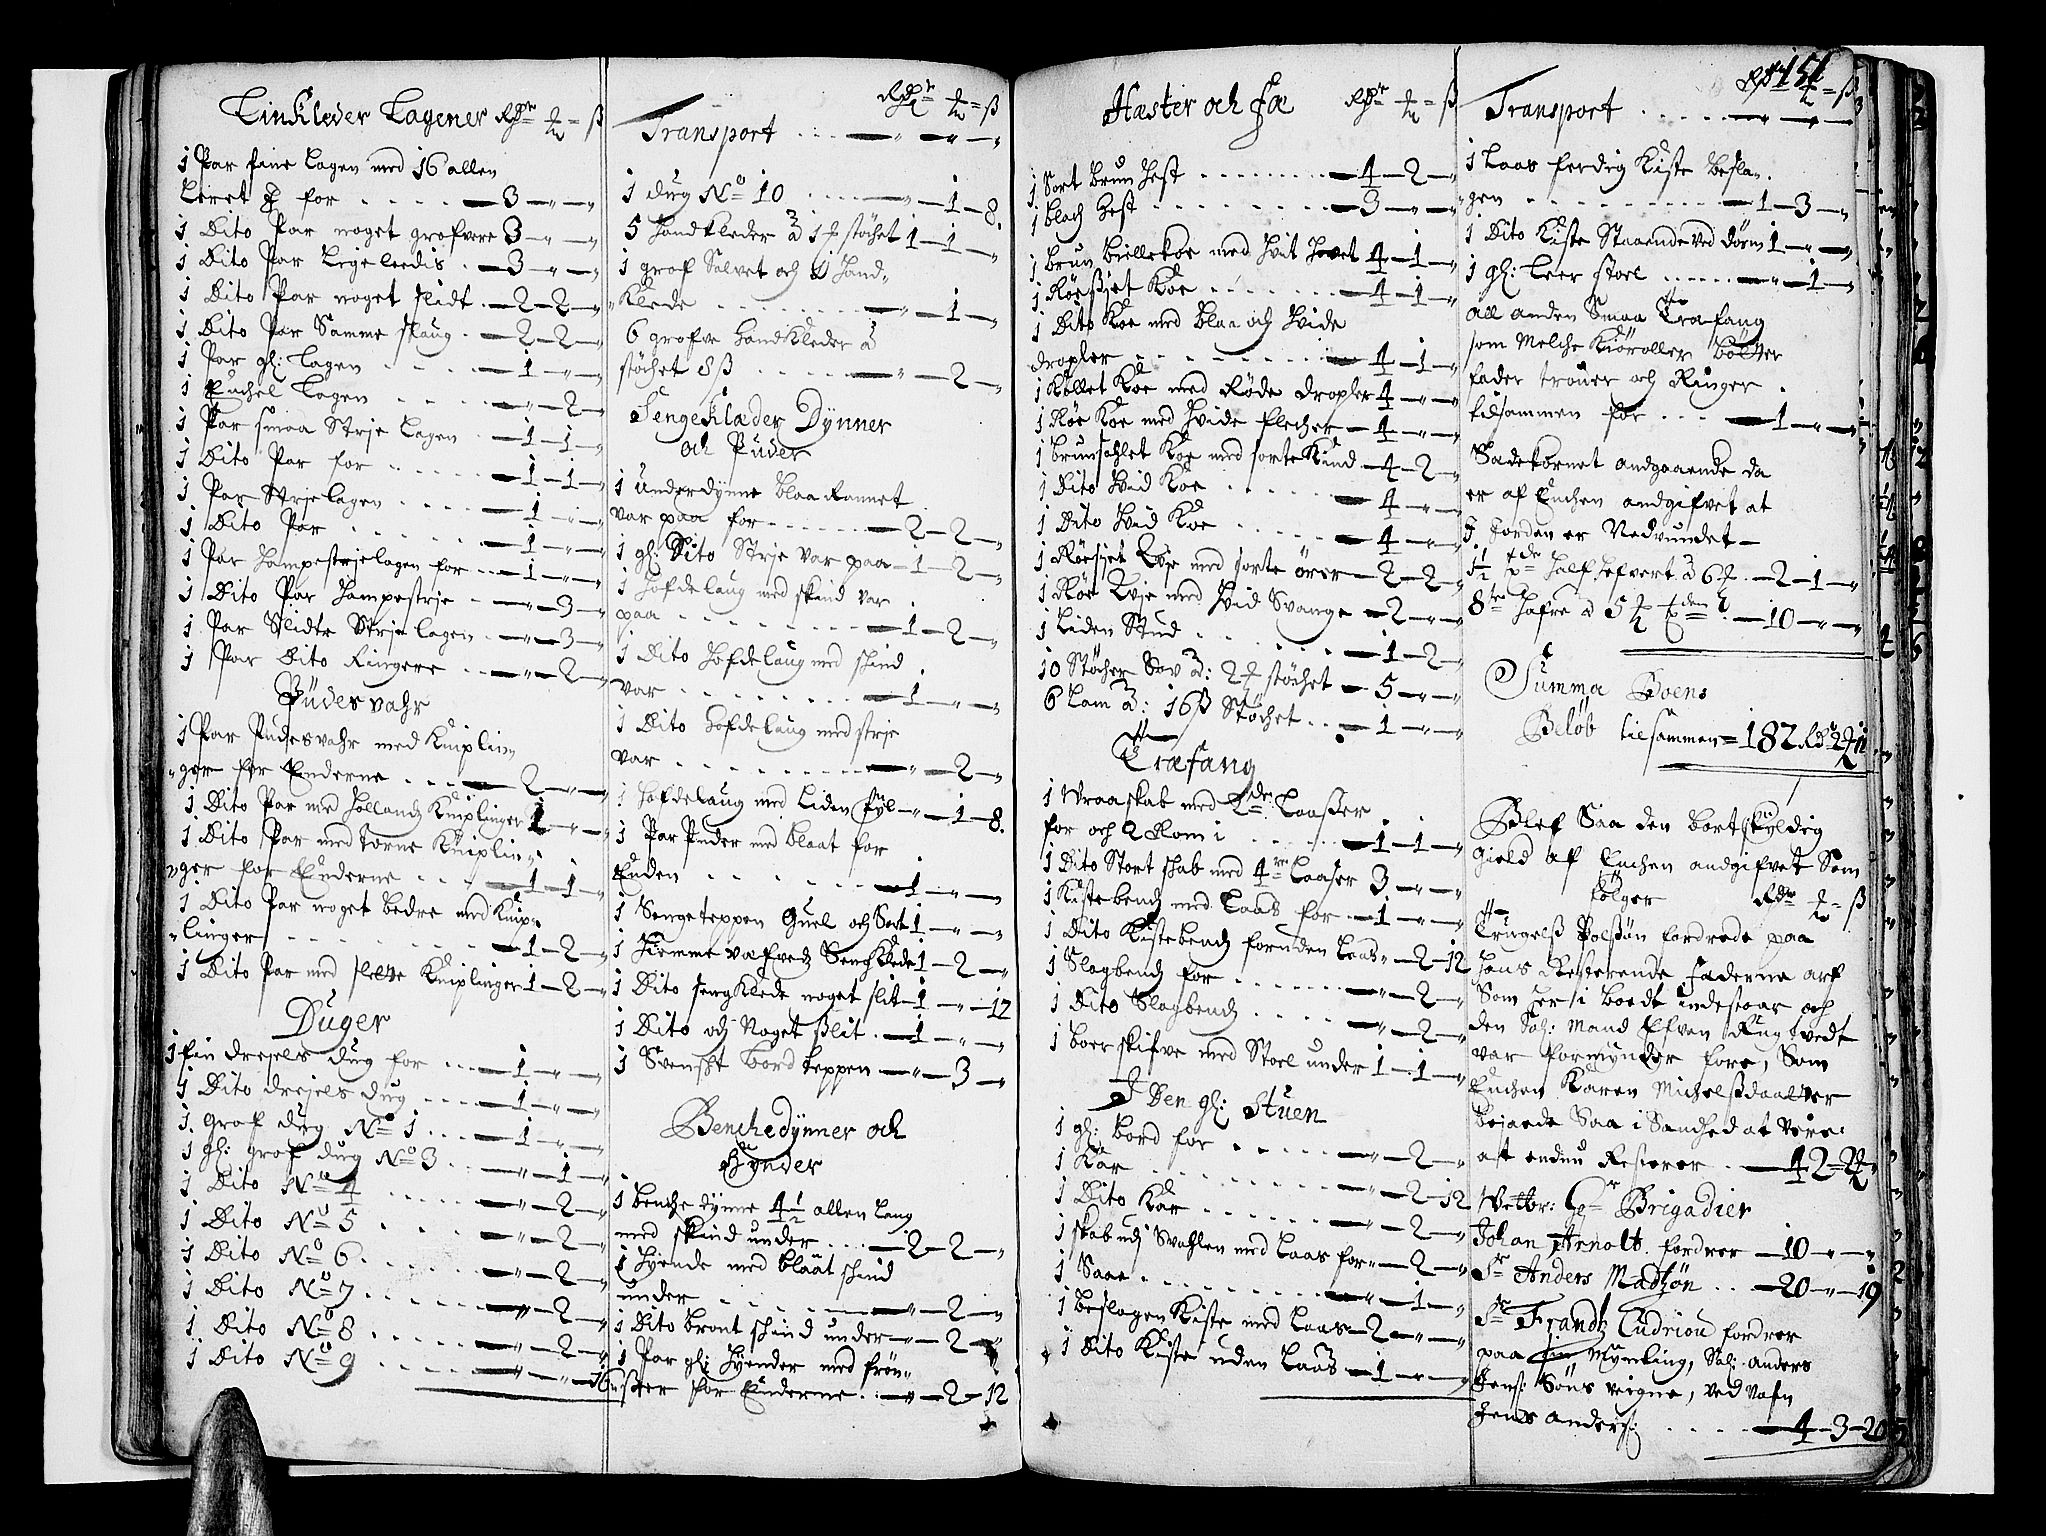 Linklæder Lagener Rdr ꝗ ß
1 Par fine Lagen med 16 allen
Leret for . . . . . — 3 — " — "
1 Dito Par noget grofvere 3 — " — "
1 Dito Par Ligeleedis . — 3 — " — "
1 Dito Par noget slidt . — 2 — 2 — "
1 Dito Par Samme slaug . — 2 — 2 — "
1 Par gl: Lagen . . . . — 1 — " — "
1 Enchel Lagen . . . . — " — 2 — "
1 Par smaa Strje Lagen . — 1 — 1 — "
1 Dito Par for . . . . — 1 — 1 — "
1 Par Strjelagen . . . . — 1 — " — "
1 Dito Par . . . . . — 1 — " — "
1 Par Hampestrjelagen for . . — 1 — " — "
1 Dito Par Hampestrje . — " — 3 — "
1 Par Slidte Strje lagen . . — " — 3 — "
1 Par Dito Ringere . . — " — 2 — "
Püdesvahr
1 Par Pudesvahr med Kniplin-
ger for Enderne . . . — 2 — " — "
1 Dito Par med Hollandsk Kniplinger 1 — " — "
1 Dito Par med torne Kniplin-
ger for Enderne . . . — 1 — 1 — "
1 Dito Par noget bedre med Knip-
linger . . . . . . — 1 — 2 — "
1 Dito Par med slette Kniplinger 1 — 2 — "
Duger
1 fin drejels dug for . . . — 1 — " — "
1 Dito drejels dug . . . . — 1 — " — "
1 grof dug No 1 . . . — 1 — " — "
1 gl: grof dug No 3 . . — " — 1 — "
1 Dito No 4 . . . . — " — 2 — "
1 Dito No 5 . . . . — " — 2 — "
1 Dito No 6 . . . . — " — 2 — "
1 Dito No 7 . . . . — " — 2 — "
1 Dito No 8 . . . . — " — 2 — "
1 Dito No 9 . . . . — " — " — 16
Rdr ꝗ ß
Transport . . . — " — "
1 dug No 10 . . . . — " — 1 — 8.
5 Handkleder a 1 ꝗ støchet 1 — 1 — "
1 grof Salvet och 1 Hand-
Klede . . . . . . — " — 1 — "
6 grofve Handkleder a
støchet 8 ß . . . . — " — 2 — "
Sengeklæder Dynner
och Puder
1 Underdynne blaa Rannet
var paa for . . . . — 2 — 2 — "
1 gl: Dito Strje var paa — 1 — 2 — "
1 Hofdelaug med skind var
paa . . . . . . — 1 — 2 — "
1 Dito Hofdelaug med skind
var . . . . . . — 1 — " — "
1 Dito Hofdelaug med strje
var . . . . . . — " — 2 — "
1 Hofdelaug med Liden fyl — " — 1 — 8.
1 Par Puder med blaat for
Enden . . . . . . — 1 — " — "
1 Sengeteppen Guel och Sort 1 — " — "
1 Hiemme vafved Sengklede 1 — 2 — "
1 Dito sengklede noget slit — 1 — " — 12
1 Dito och Noget slit . — 1 — " — "
1 Svenskt bord teppen — " — 3 — "
Benchedynner och
Hynder
1 benche dynne 4 1/2 allen Lang
med skind under . . . — 2 — 2 — "
1 Hyende med blaat skind
under . . . . . . — " — 2 — "
1 Dito bront skind under — " — 2 — "
1 Par gl: Hyender med frøn-
ster for Enderne . . — " — 2 — 12
Hæster och Fæ Rdr ꝗ ß
1 Sort brun Hest . . . . — 4 — 2 — "
1 blach Hest . . . . . — 3 — " — "
1 brun Biellekoe med Hvit Hovet 4 — 1 — "
1 Røesiet Koe . . . . — 4 — 1 — "
1 Dito Koe med blaa och Hvide
dropler . . . . . — 4 — 1 — "
1 Kollet Koe med Røde dropler 4 — " — "
1 Røe Koe med Hvide flecher — 4 — " — "
1 brunsahlet Koe med sorte Kind — 4 — 2 — "
1 Dito Hvid Koe . . . . — 4 — " — "
1 Dito Hvid Koe . . . . — 4 — " — "
1 Røesiet Qvje med sorte ører — 2 — 2 — "
1 Røe Qvje med Hvid Svange — 2 — " — "
1 Liden Stud . . . . . — 1 — 2 — "
10 Støcher Sov a: 2 ꝗ støchet — 5 — " — "
6 Lam a: 16 ß Støchet . . — 1 — " — "
Træfang
1 Vraaskab med 2de Laasser
for och 2 Rom i . . . . — 1 — 1 — "
1 Dito Stort skab med 4re Laaser 3 — " — "
1 Kistebench med Laas for — 1 — " — "
1 Dito Kistebench foruden Laas " — 2 — 12
1 Slagbench for . . . . — " — 2 — "
1 Dito Slagbench . . . . — " — 2 — "
1 boer skifve med Stoel under 1 — 1 — "
I Den gl: Stuen
1 gl: bord for . . . . — " — 2 — "
1 Kar . . . . . . — " — 2 — 12
1 Dito Kar . . . . . — " — 2 — "
1 skab udj Svahlen med Laas for — " — 2 — "
1 Saae . . . . . . — " — 1 — "
1 beslagen Kiste med Laas — 2 — " — "
1 Dito Kiste uden Laas — 1 — " — "
151
Rdr ꝗ ß
Transport . . . . — " — "
1 Laas ferdig Kiste besla-
gen . . . . . . — 1 — 3 — "
1 Dito Kiste Staaende ved dørn 1 — " — "
1 gl: Leer stoel . . . . — " — 1 — "
All anden Smaa Træfang
som Melche Kiøroller Bøtter
fader trouer och Ringer
tilsammen for . . . — 1 — " — "
Sædekornet andgaaende da
er af Enchen andgifvet at
I Jorden er Nedvundet —
1 1/2 tde Half Hefvert a 6 ꝗ . — 2 — 1 — "
8te Hafre a 5 ꝗ tden . — 10 — " — "
Summa Boens
Beløb tilsammen = 182 Rd 2 ꝗ
Blef Saa den bortskyldig
gield af Enchen andgifvet Som
følger Rdr ꝗ ß
Trugels Polsøn fordrede paa
Hans Resterende Faderne arf
Som Her i boedt indestaar och
den Sal: Mand Efven Rugtvedt
var formynder fore, Som
Enchen Karen Michelsdaatter
bejaede Saa i Sandhed at være
alt endnu Resterer . — 42 — 2 ꝗ "
Velbr: Hr Brigadier
Johan Arnolt fordrer — 10 — " — "
Sr Anders Madtzøn . . — 20 — " — 19
Sr Frandtz Cudriou fordrer
paa sin Mynling, Sal: Anders
Jens: Søns veigne, ved Nafn
Jens Anders: . . . . — 4 — 3 — 20